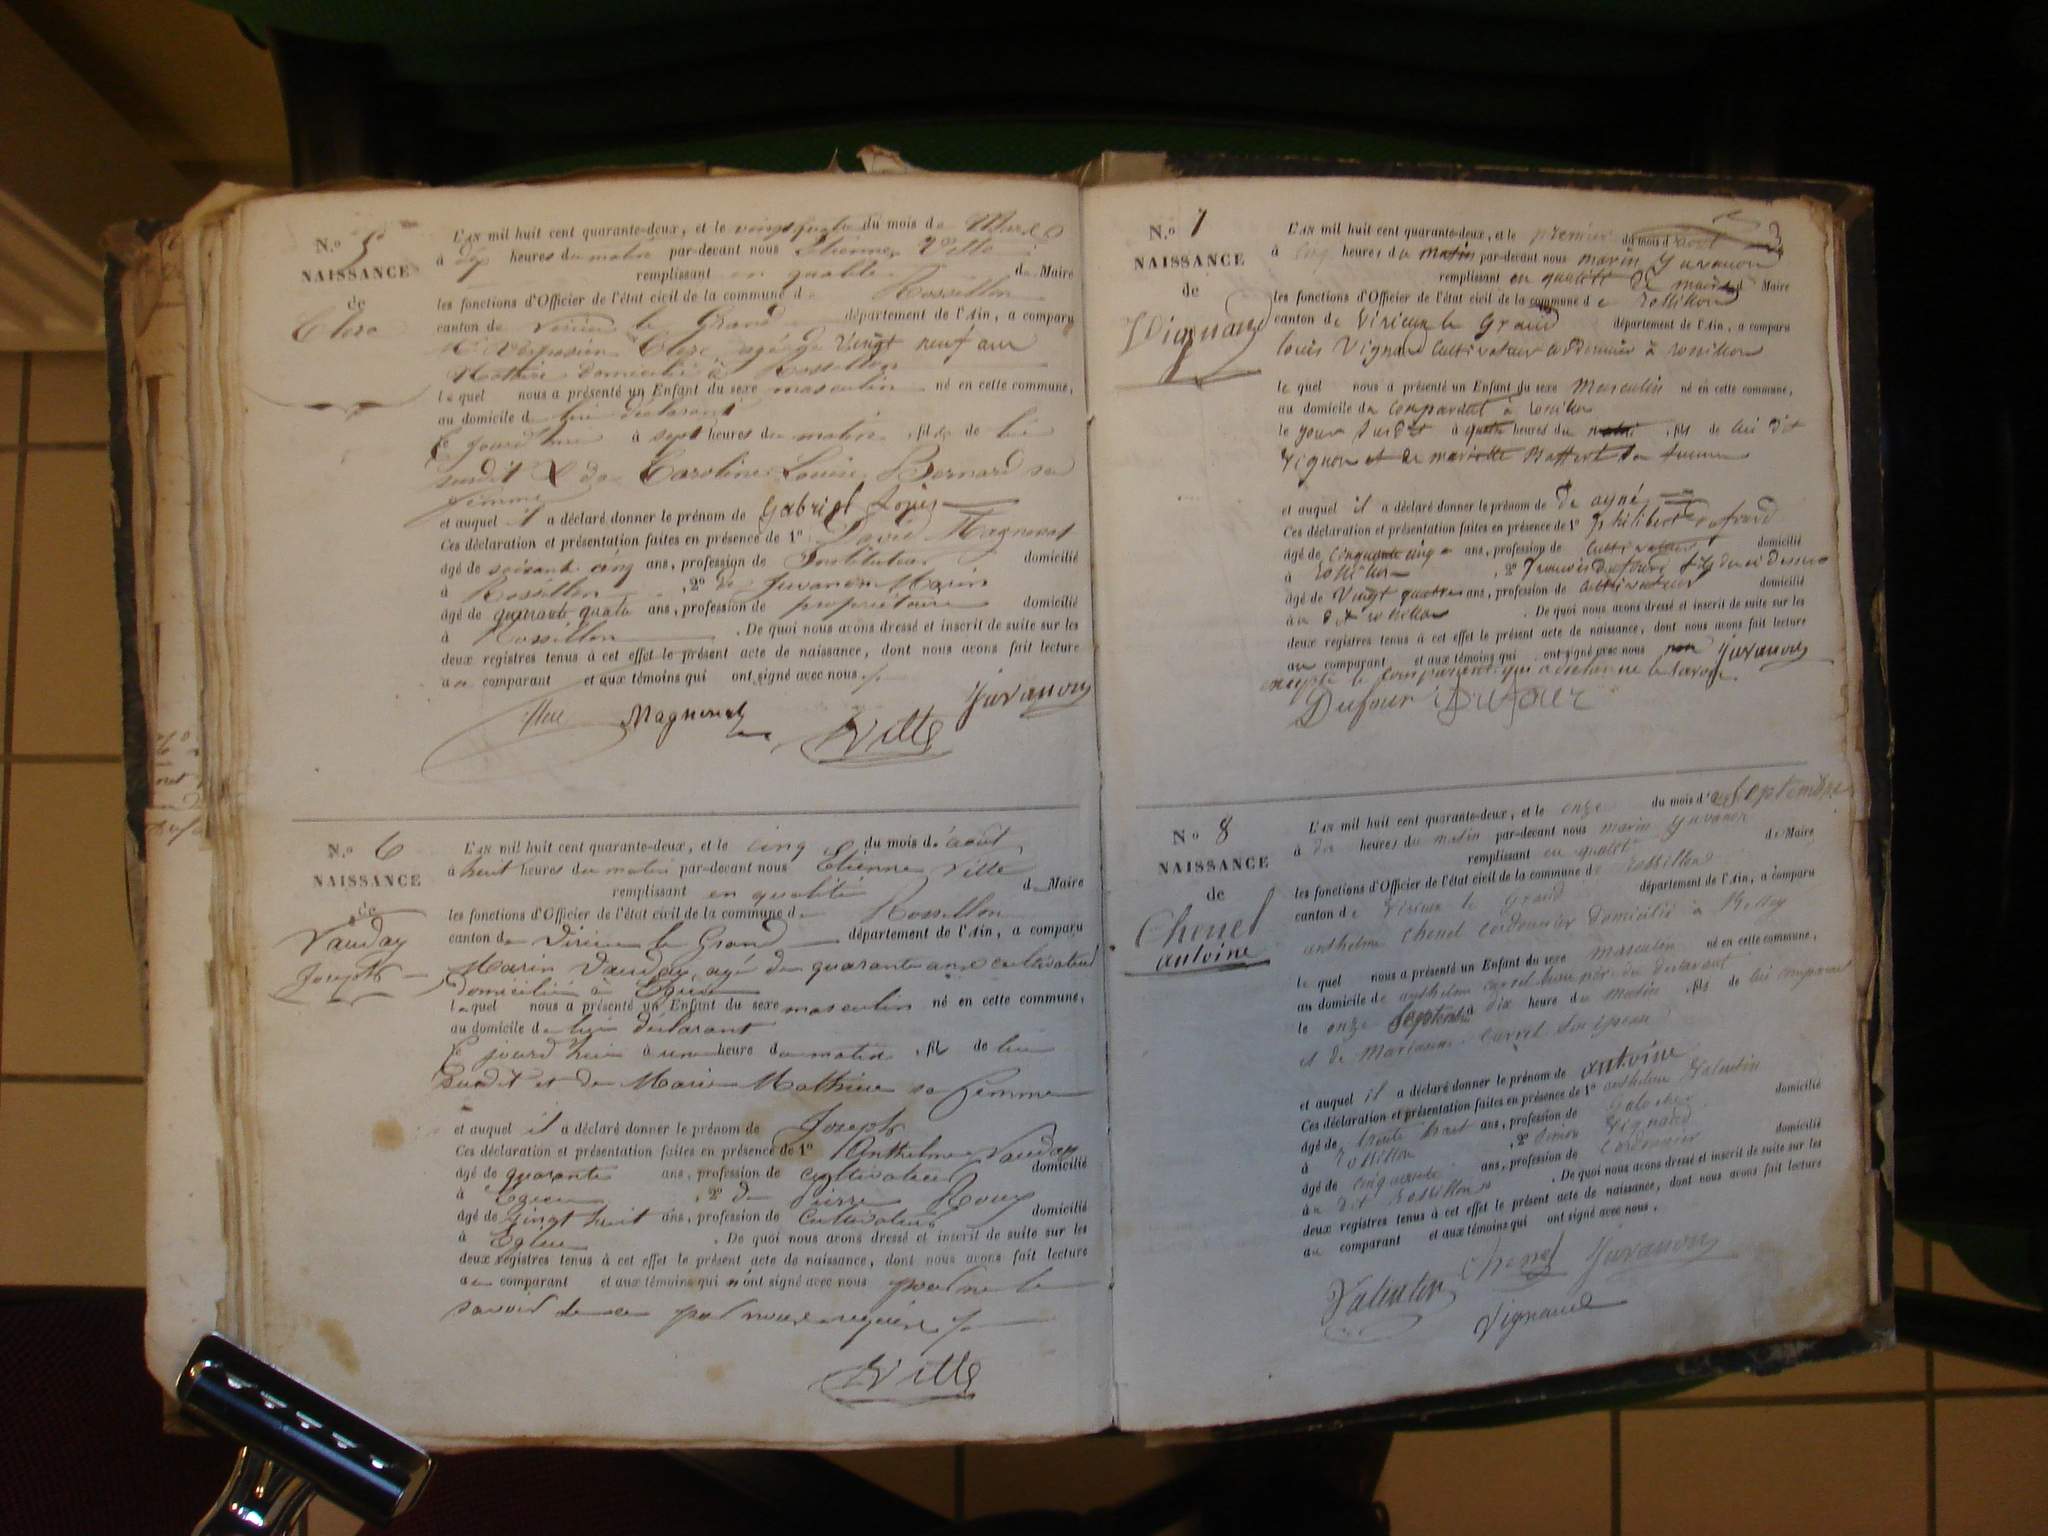 N.º 5
NAISSANCE
de
Clerc
L'AN mil huit cent quarante-deux, et le vingt quatre du mois de Mars
à dix heures du matin par-devant nous Etienne Ville
remplissant en qualité de Maire
les fonctions d'Officier de l'état civil de la commune de Rossillon
canton de Virieu le Grand département de l'Ain, a comparu
Clerc agé de vingt neuf ans
Notaire domicilié à Rossillon
lequel nous a présenté un Enfant du sexe masculin né en cette commune,
au domicile de lui déclarant
ce jourd'hui à sept heures du matin, fils de lui
susdit & de Caroline Louise Bernard sa
femme
et auquel il a déclaré donner le prénom de Gabriel Louis
Ces déclaration et présentation faites en présence de 1º David Magnenot
âgé de soixante cinq ans, profession de Instituteur domicilié
à Rossillon, 2º de Juvanon Marin
âgé de quarante quatre ans, profession de propriétaire domicilié
à Rossillon. De quoi nous avons dressé et inscrit de suite sur les
deux registres tenus à cet effet le présent acte de naissance, dont nous avons fait lecture
au comparant et aux témoins qui ont signé avec nous
Magnenot Ville Juvanon
N.º 6
NAISSANCE
de
Vauday
Joseph
L'AN mil huit cent quarante-deux, et le cinq du mois d'août
à huit heures du matin par-devant nous Etienne Ville
remplissant en qualité de Maire
les fonctions d'Officier de l'état civil de la commune de Rossillon
canton de Virieu le Grand département de l'Ain, a comparu
Marin Vauday agé de quarante ans cultivateur
domicilié à Egieu
lequel nous a présenté un Enfant du sexe masculin né en cette commune,
au domicile de lui déclarant
ce jourd'hui à une heure du matin, fils de lui
susdit et de Marie Mathieu sa femme
et auquel il a déclaré donner le prénom de Joseph
Ces déclaration et présentation faites en présence de 1º Anthelme Vauday
âgé de quarante ans, profession de cultivateur domicilié
à Egieu, 2º de Pierre Roux
âgé de vingt huit ans, profession de cultivateur domicilié
à Egieu. De quoi nous avons dressé et inscrit de suite sur les
deux registres tenus à cet effet le présent acte de naissance, dont nous avons fait lecture
au comparant et aux témoins qui n'ont signé avec nous pour ne le
savoir de ce par nous requis
Ville
N.º 7
NAISSANCE
de
Vignand
L'AN mil huit cent quarante-deux, et le premier du mois d'août
à cinq heures du matin par-devant nous marin Juvanon
remplissant en qualité de maire d Maire
les fonctions d'Officier de l'état civil de la commune de rossillon
canton de Virieux le Grand département de l'Ain, a comparu
louis Vignand cultivateur à rossillon
le quel nous a présenté un Enfant du sexe masculin né en cette commune,
au domicile du comparant à rossillon
le jour susdit à quatre heures du matin, fils de lui dit
Vignon et de mariette sa femme
et auquel il a déclaré donner le prénom de ayné
Ces déclaration et présentation faites en présence de 1º philibert
âgé de cinquante cinq ans, profession de cultivateur domicilié
à rossillon, 2º françois dufour fils du ci dessus
âgé de vingt quatre ans, profession de cultivateur domicilié
au dit rossillon. De quoi nous avons dressé et inscrit de suite sur les
deux registres tenus à cet effet le présent acte de naissance, dont nous avons fait lecture
au comparant et aux témoins qui ont signé avec nous Juvanon
excepté le comparant qui a le savoir
Dufour Dufour
Nº 8
NAISSANCE
de
Chenel
antoine
L'AN mil huit cent quarante-deux, et le onze du mois d Septembre
à dix heures du matin par-devant nous marin Juvanon
remplissant en qualité de Maire
les fonctions d'Officier de l'état civil de la commune de rossillon
canton de Virieux le Grand département de l'Ain, a comparu
anthelme Chenel cordonnier domicilié à
le quel nous a présenté un Enfant du sexe masculin né en cette commune,
au domicile de anthelme carrel beau père du déclarant
le onze Septembre à dix heure du matin, fils de lui comparant
et de Marianne Carrel
et auquel il a déclaré donner le prénom de antoine
Ces déclaration et présentation faites en présence de 1º anthelme Valentin
âgé de trente huit ans, profession de domicilié
à rossillon, 2º Vignand
âgé de cinquante ans, profession de cordonnier domicilié
au dit Rossillon. De quoi nous avons dressé et inscrit de suite sur les
deux registres tenus à cet effet le présent acte de naissance, dont nous avons fait lecture
au comparant et aux témoins qui ont signé avec nous.
Valentin Chenel Juvanon
Vignand